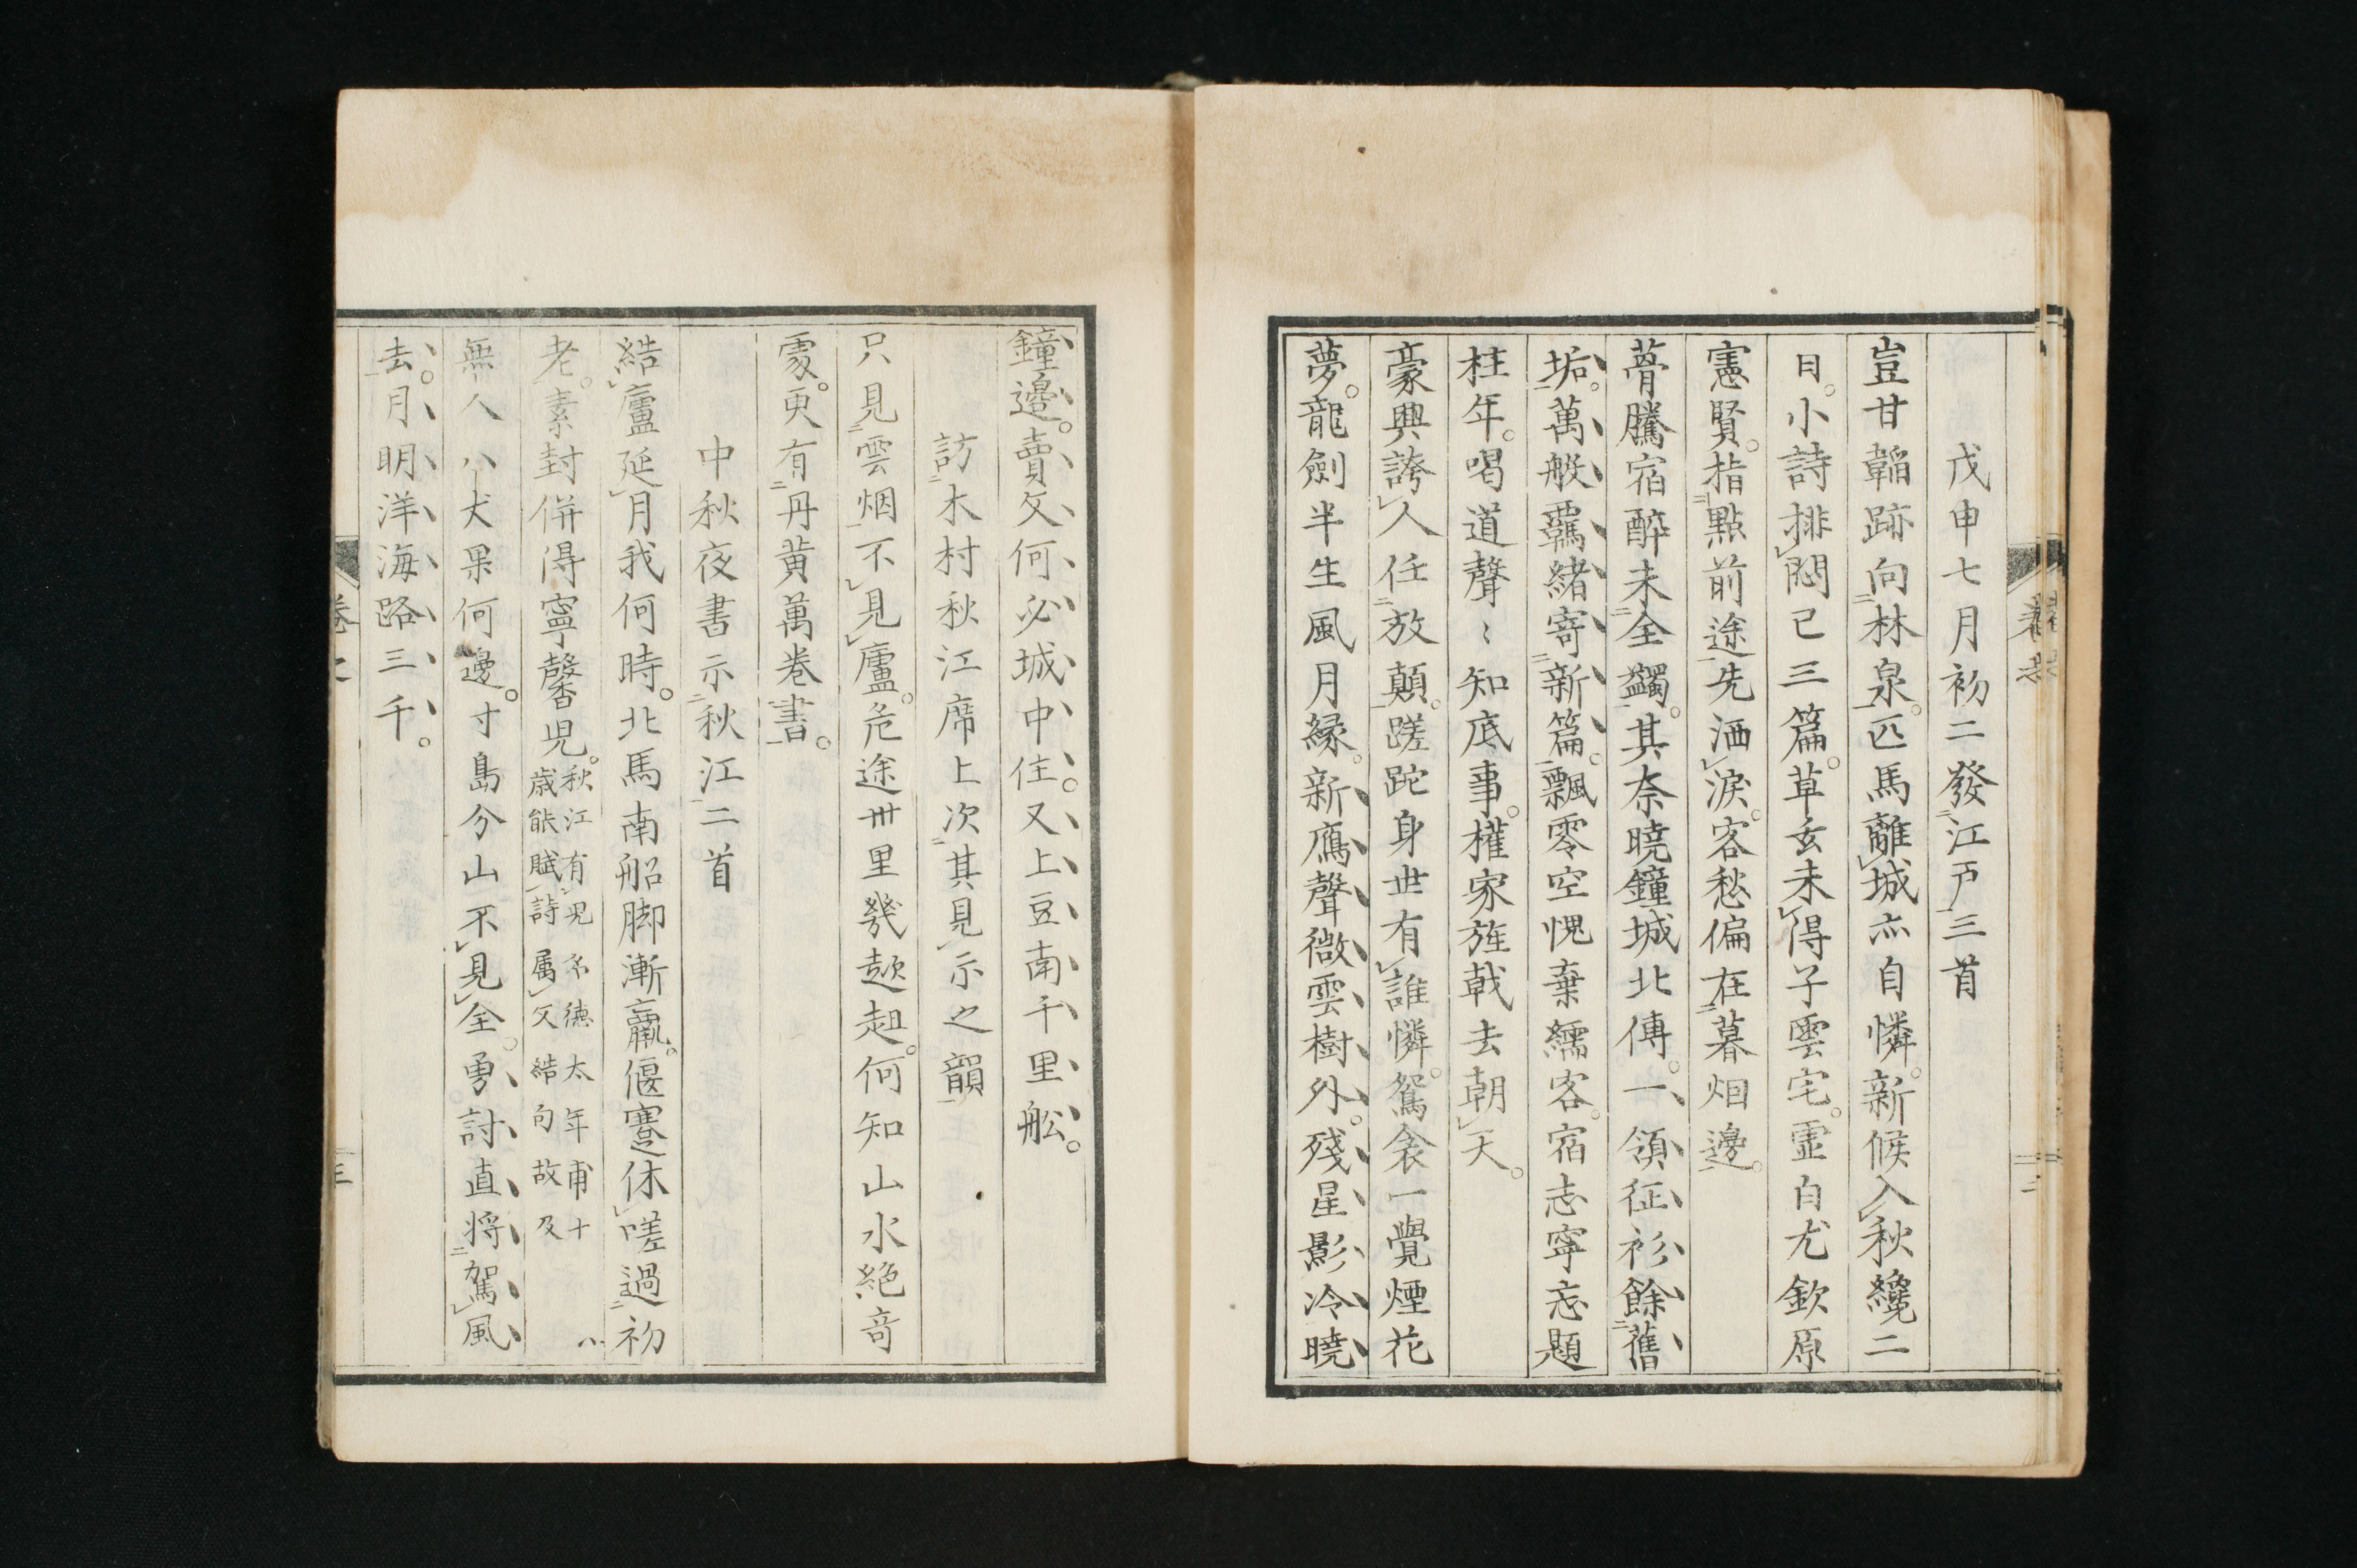 戊申七月初二發江戸三首
豈甘韜跡向林泉。匹馬離城亦自憐。新候入秋纔二
日。小詩排悶已三篇。草玄未得子雲宅。靈白尤欽原
憲賢。指點前途先洒淚。客愁偏在暮烟邊。
瞢騰宿醉未全蠲。其奈曉鐘城北傳。一領征衫餘舊
垢。萬般羈緒寄新篇。飄零空愧棄繻客。宿志寧忘題
柱年。喝道聲〻知底事。權家旌戟去朝天。
豪興誇人任放顛。蹉跎身世有誰憐。鴛衾一覺煙花
夢。龍劍半生風月緣。新鴈聲微雲樹外。殘星影冷曉
鐘邊。賣文何必城中住。又上豆南千里舩。
訪木村秋江席上次其見示之韻
只見雲烟不見廬。危途卅里幾趑趄。何知山水絶奇
處。更有丹黄萬卷書。
中秋夜書示秋江二首
結廬延月我何時。北馬南船脚漸羸。偃蹇休嗟過初
老。素封併得寧馨児。秋江有児名德太年甫十
歳能賦詩属文結句故及
無人八犬果何邊。寸島分山不見全。勇討直將駕風
去。月明洋海路三千。